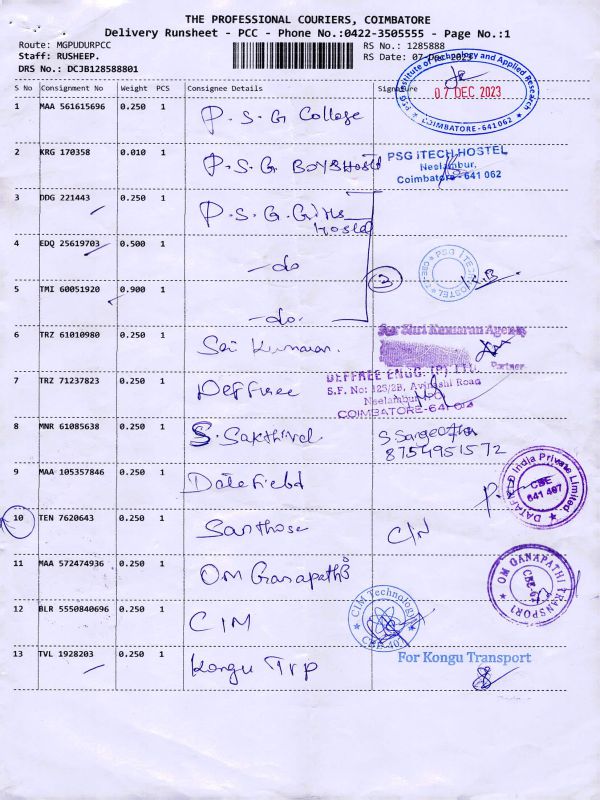 THE PROFESSIONAL COURIERS, COIMBATORE
Delivery Runsheet - PCC - Phone No.:0422-3505555 - Page No.:1
Route: MGPUDURPCC
RS No.: 1285888
Staff: RUSHEEP.
RS Date: 07-Dec-2023
DRS No.: DCJB128588801
S No Consignment No Weight PCS Consignee Details Signature
Institute of Technology and Applied Research
07 DEC 2023
COIMBATORE-641062
1 MAA 561615696 0.250 1 P.S.G College
2 KRG 170358 0.010 1 P.S.G Boys Hostel
PSG iTECH HOSTEL
Neelambur,
Coimbatore- 641 062
3 DDG 221443 0.250 1 P.S.G.Girls
Hostel
4 EDQ 25619703 0.500 1 -do
2
PSG iTECH
HOSTEL
5 TMI 60051920 0.900 1 -do.
6 TRZ 61010980 0.250 1 Sri Kumaran.
For Shri Kumaran Agency
Partner
7 TRZ 71237823 0.250 1 Deffree
DEFFREE ENGG. (P) LTD.
S.F. No: 325/2B, Avinashi Road
Neelambur
COIMBATORE-641 062
8 MNR 61085638 0.250 1 S. Sakthivel
8754951572
9 MAA 105357846 0.250 1 Datafield
DATAFIELD India Private Limited
CBE
641 407
10 TEN 7620643 0.250 1 Santhose C/N
11 MAA 572474936 0.250 1 OM Ganapathi
OM GANAPATHI TRANSPORT
12 BLR 5550840696 0.250 1 CIM
CIM Technology
13 TVL 1928203 0.250 1 Kongu Trp
For Kongu Transport